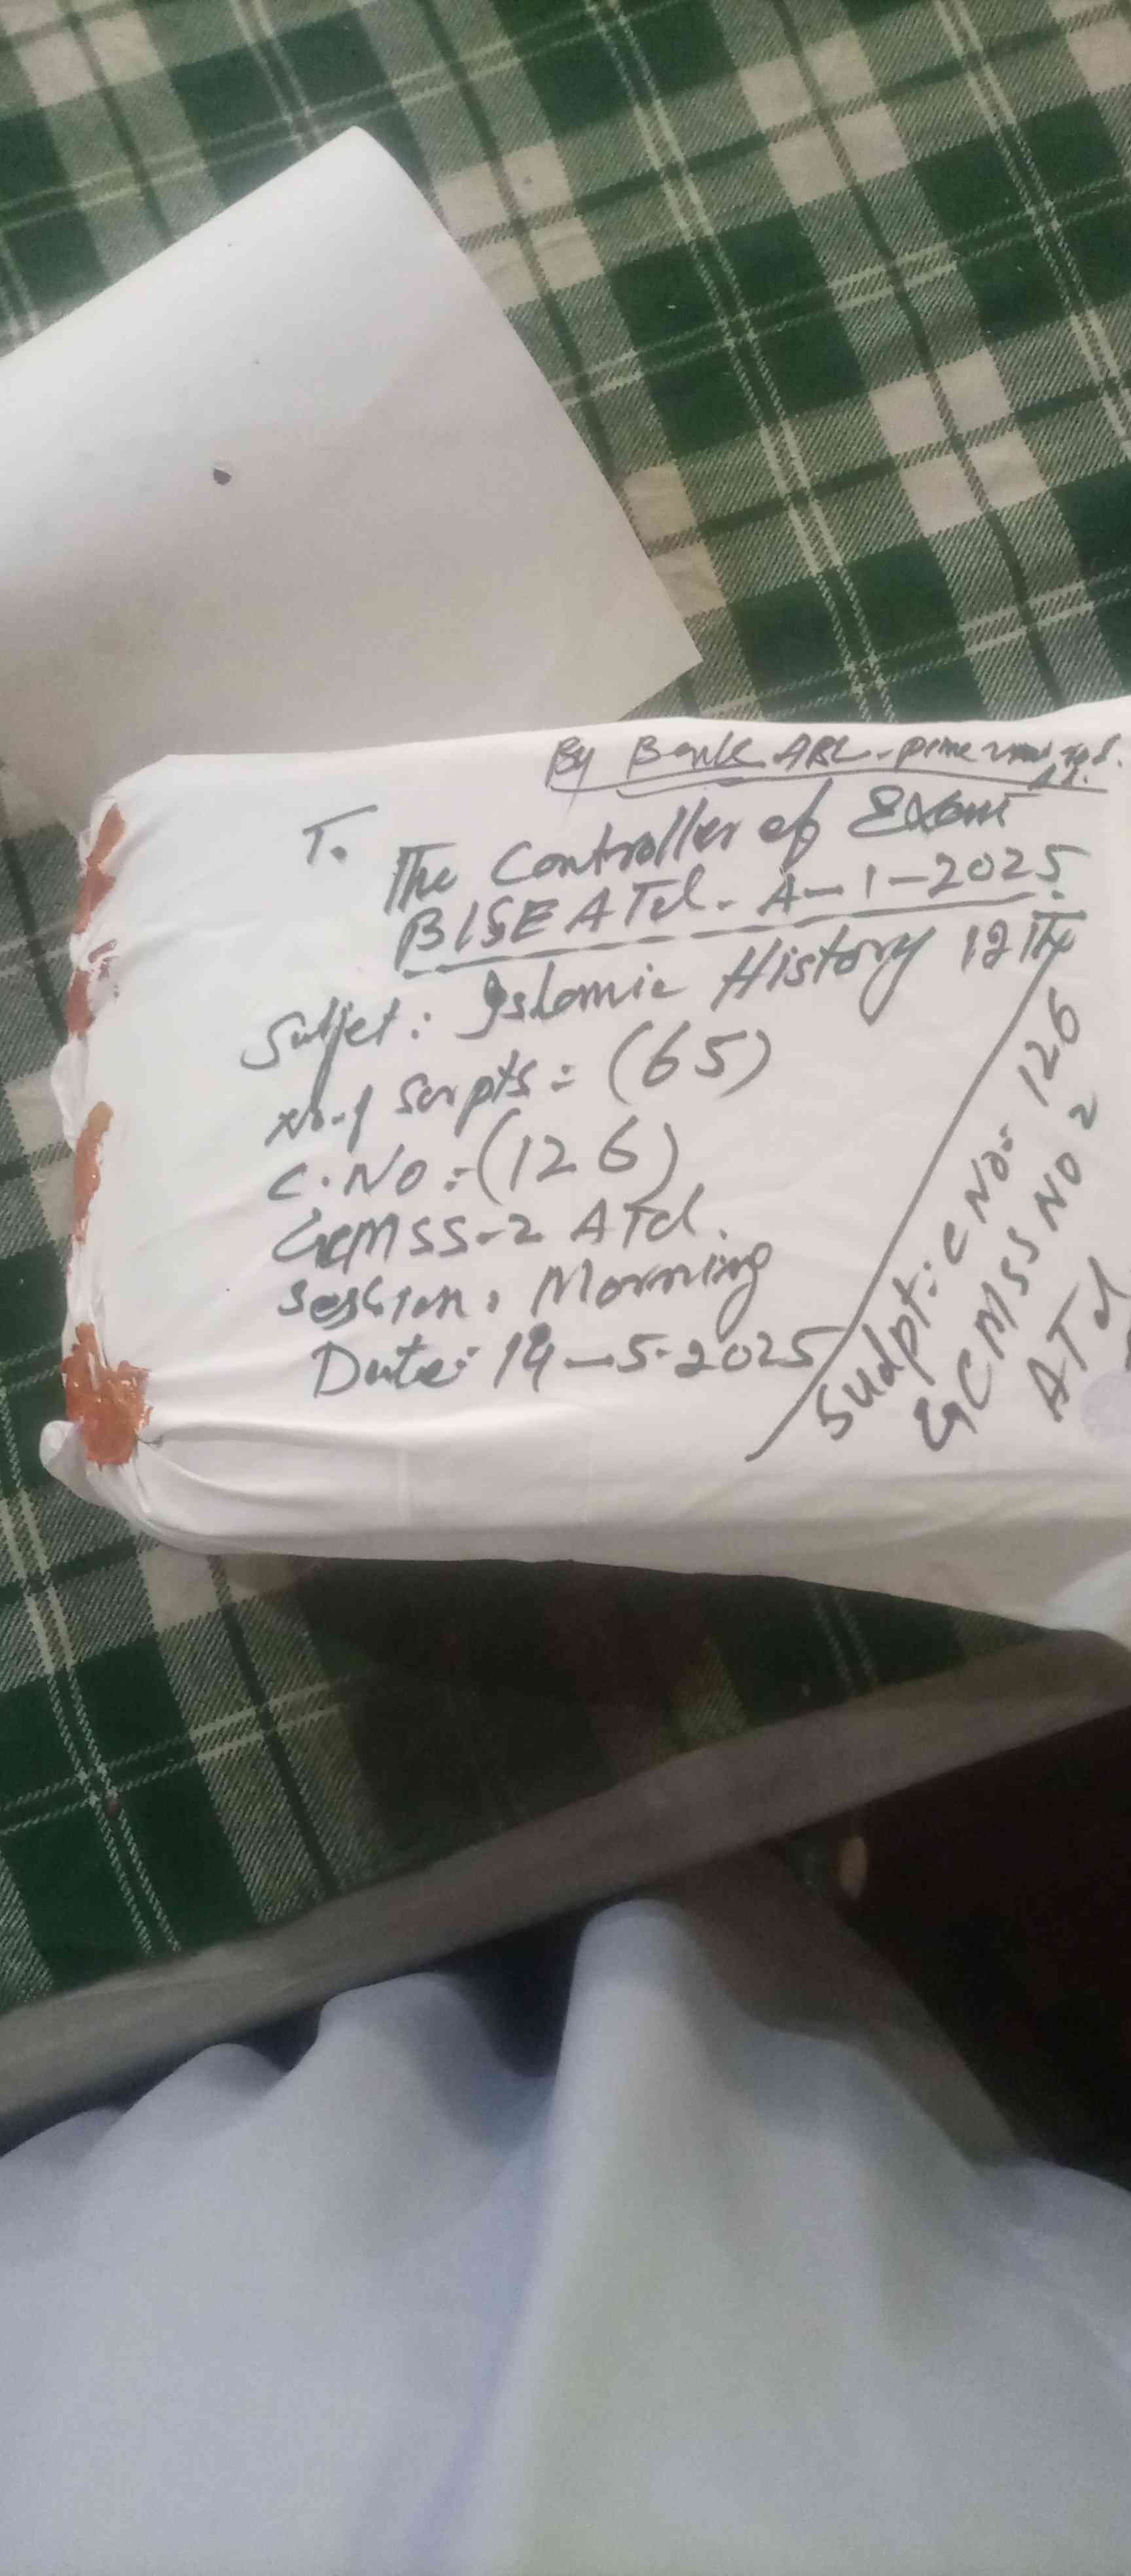 By Bank ABL
To
The Controller of Exam
BISE ATd. A-1-2025.
Subjet: Islomic History 12th
No. of Scripts = (65)
C.No:-(126)
GCMSS-2 ATd.
Session: Morning
Date: 14-5-2025
Sudpt: C No: 126
GCMSS NO 2
ATd